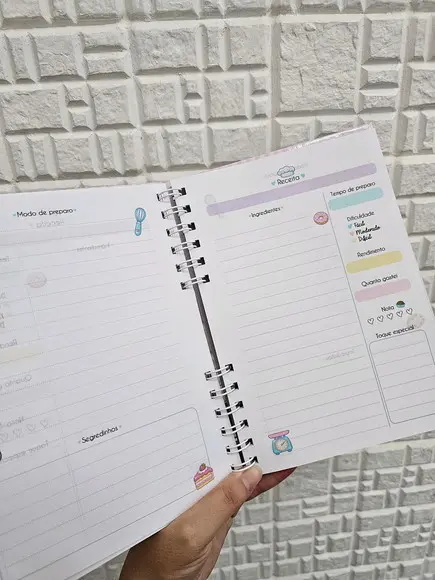 Modo de preparo
Segredinhos
Receita
Ingredientes
Tempo de preparo
Dificuldade
Fácil
Moderado
Difícil
Rendimento
Quanto gastei
Nota
Toque especial